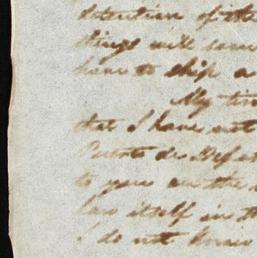 detention of the
things will
have to ship a
My tim
that I have not
Puerto de
to you on the
has itself in t
I do not know